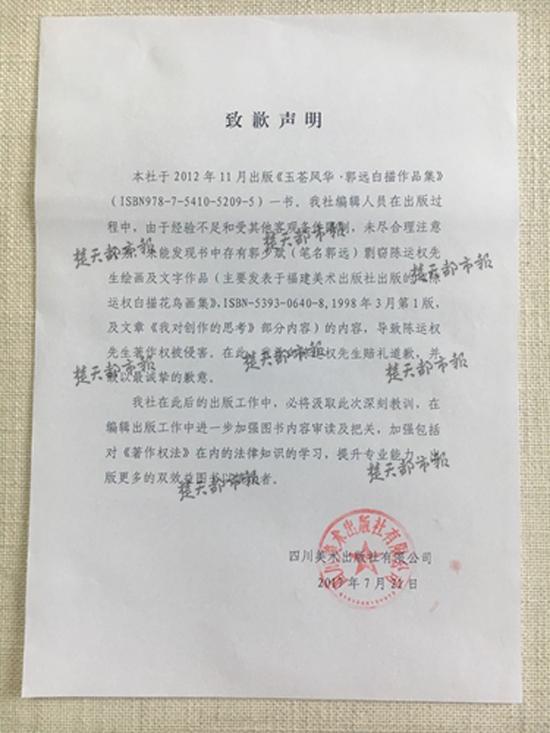 致歉声明
本社于2012年11月出版《玉苍风华·郭远白描作品集》
（ISBN978-7-5410-5209-5）一书。我社编辑人员在出版过
程中，由于经验不足和受其他客观条件限制，未尽合理注意
未能发现书中存有郭少斌（笔名郭远）剽窃陈运权先
生绘画及文字作品（主要发表于福建美术出版社出版的
运权白描花鸟画集》，ISBN-5393-0640-8，1998年3月第1版，
及文章《我对创作的思考》部分内容）的内容，导致陈运权
先生著作权被侵害。在此，权先生赔礼道歉，并
以最诚挚的歉意。
我社在此后的出版工作中，必将汲取此次深刻教训，在
编辑出版工作中进一步加强图书内容审读及把关，加强包括
对《著作权法》在内的法律知识的学习，提升专业能力，
版更多的双效益图书以者。
四川美术出版社有限公司
7月21日
四川美术出版社有限公司
楚天都市报
楚天都市报
楚天都市报
楚天都市报
楚天都市报
楚天都市报
楚天都市报
楚天都市报